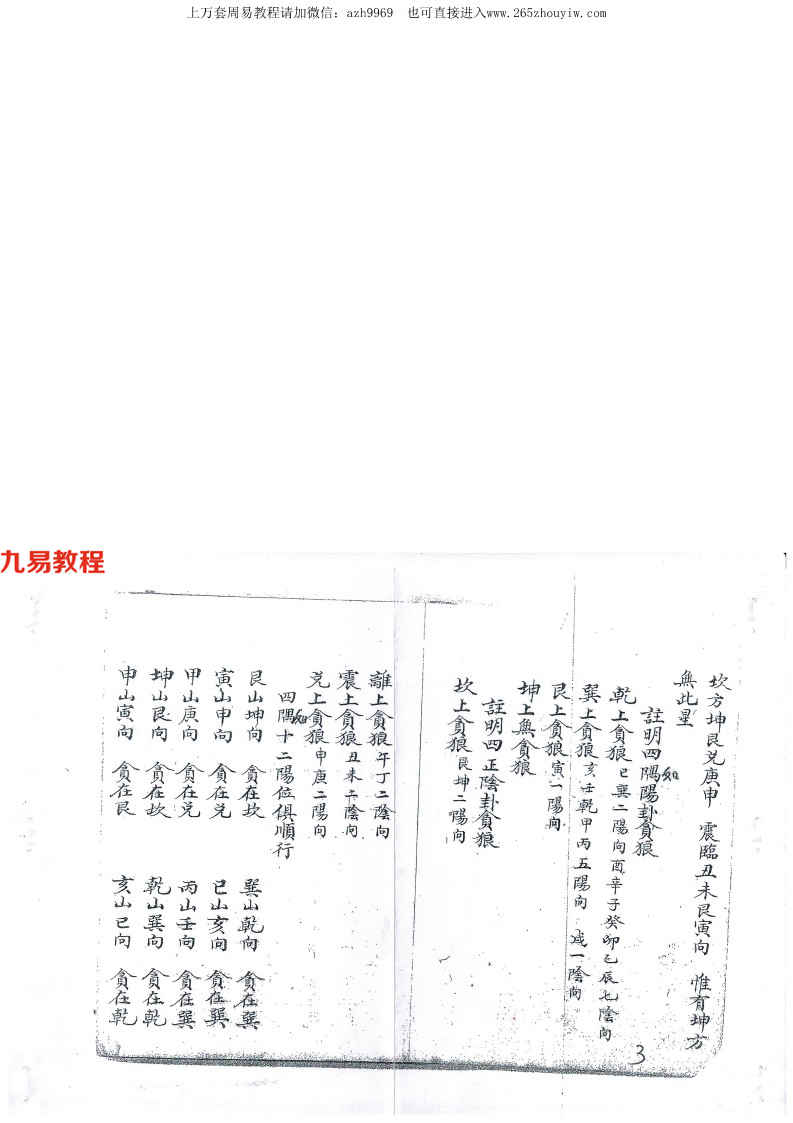 上万套周易教程请加微信：azh9969 也可直接进入www.265zhouyiw.com
九易教程
坎方坤艮兑庚申 震臨丑未艮寅向 惟有坤方
無此星
註明四隅陽卦貪狼
乾上貪狼巳巽二陽向酉辛子癸卯乙辰七陰向
巽上貪狼亥壬乾甲丙五陽向 一陰向
艮上貪狼寅一陽向
坤上無貪狼
註明四正陰卦貪狼
坎上貪狼艮坤二陽向
離上貪狼午丁二陰向
震上貪狼丑未二陰向
兑上貪狼申庚二陽向
四隅十二陽位俱順行
艮山坤向 貪在坎 巽山乾向 貪在巽
寅山申向 貪在兑 巳山亥向 貪在巽
甲山庚向 貪在兑 丙山壬向 貪在巽
坤山艮向 貪在坎 乾山巽向 貪在乾
申山寅向 貪在艮 亥山巳向 貪在乾
3